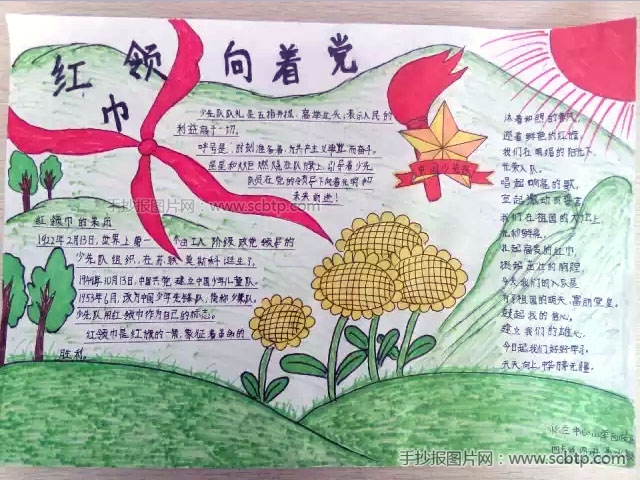 红领巾
向着党
少先队队礼是五指并拢,高举过头,表示人民的
利益高于一切。
呼号是:时刻准备着,为共产主义事业而奋斗。
星星和火炬燃烧在队旗上,引导着少先
队员在党的领导下向着光明和
未来前进!
手抄报图片网:www.scbtp.com
中国少先队
红领巾的来历
1922年2月13日,世界上第一个由工人阶级政党领导的
少先队组织,在苏联莫斯科诞生了,
1949年10月13日,中国共产党建立中国少年儿童队。
1953年6月,改为中国少年先锋队,简称少先队。
少先队用红领巾作为自己的标志。
红领巾是红旗的一角,象征着革命的
胜利。
沐着和明的春风,
迎着鲜艳的红旗,
我们在明媚的阳光下,
光荣入队。
唱起嘹亮的歌,
我们在祖国的大地上,
今天我们的入队是
鼓起我的信心。
建立我们的雄心。
今日起我们好好学习,
天天向上
中心小学
手抄报图片网:www.scbtp.com